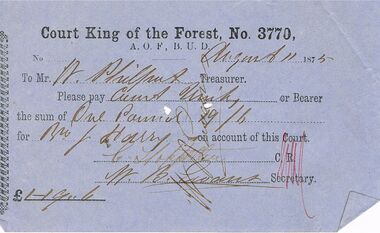 Court King of the Forest, No. 3770,
A. O. F., B. U. D.
No August 11 1875
To Mr. W. Philpot Treasurer.
Please pay Court Unity or Bearer
the sum of One Pound 19/6
for Bro J Harry on account of this Court.
C. R.
W. B. Evans Secretary.
£1-19-6